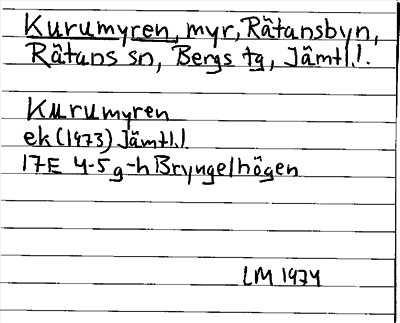 Kurumyren, myr, Rätansbyn,
Rätans sn, Bergs tg, Jämtl.l.
Kurumyren
ek (1973) Jämtl.l
17E 4-5 g-h Bryngelhögen
LM 1974